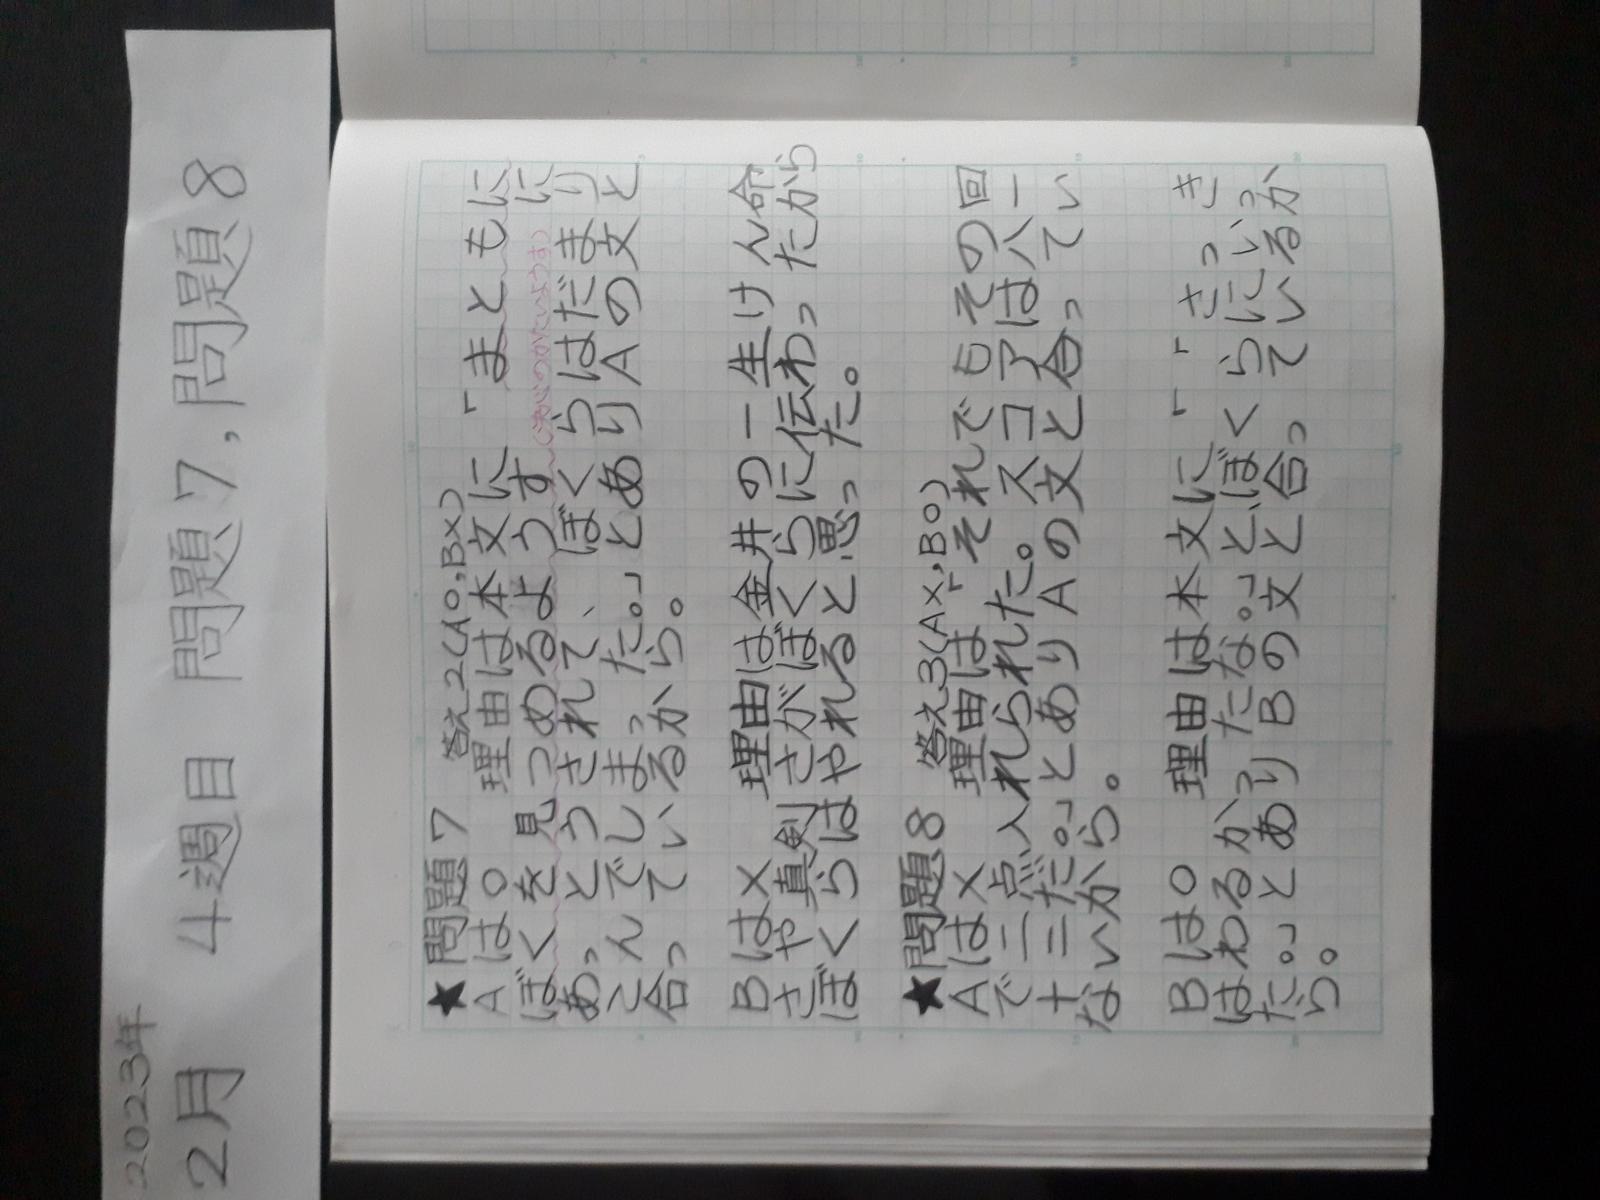 2023年
2月 4週目 問題7,問題8
★問題7 答え2(A○,B×)
Aは○ 理由は本文に「まともに
ぼくを見つめるようすに
(金井のひたいようす)
あっとうされて、ぼくらはだまり
こんでしまった。」とありAの文と
合っているから。
Bは× 理由は金井の一生けん命
さや真剣さがぼくらに伝わったから
ぼくらはやれると思った。
★問題8 答え3(A×,B○)
Aは× 理由は「それでもその回
で二点入れられた。スコアは八一
十二だ。」とありAの文と合ってい
ないから。
Bは○ 理由は本文に「「さっき
はわるかったな。」とぼくらにいっ
た。」とありBの文と合っているか
ら。